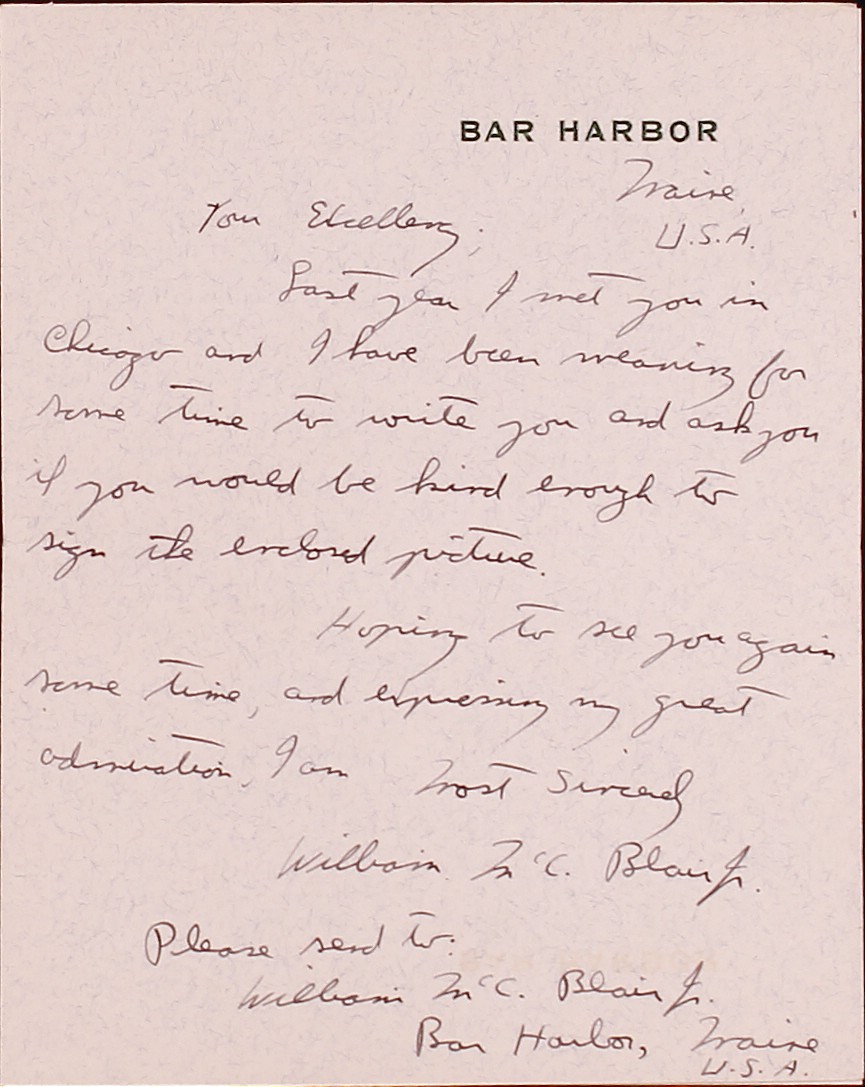 BAR HARBOR
Maine,
U.S.A.
Your Excellency;
Last year I met you in
Chicago and I have been meaning for
some time to write you and ask you
if you would be kind enough to
sign the enclosed picture.
Hoping to see you again
some time, and expressing my great
admiration, I am Most Sincerely
William McC. Blair Jr.
Please send to:
William McC. Blair Jr.
Bar Harbor, Maine
U.S.A.